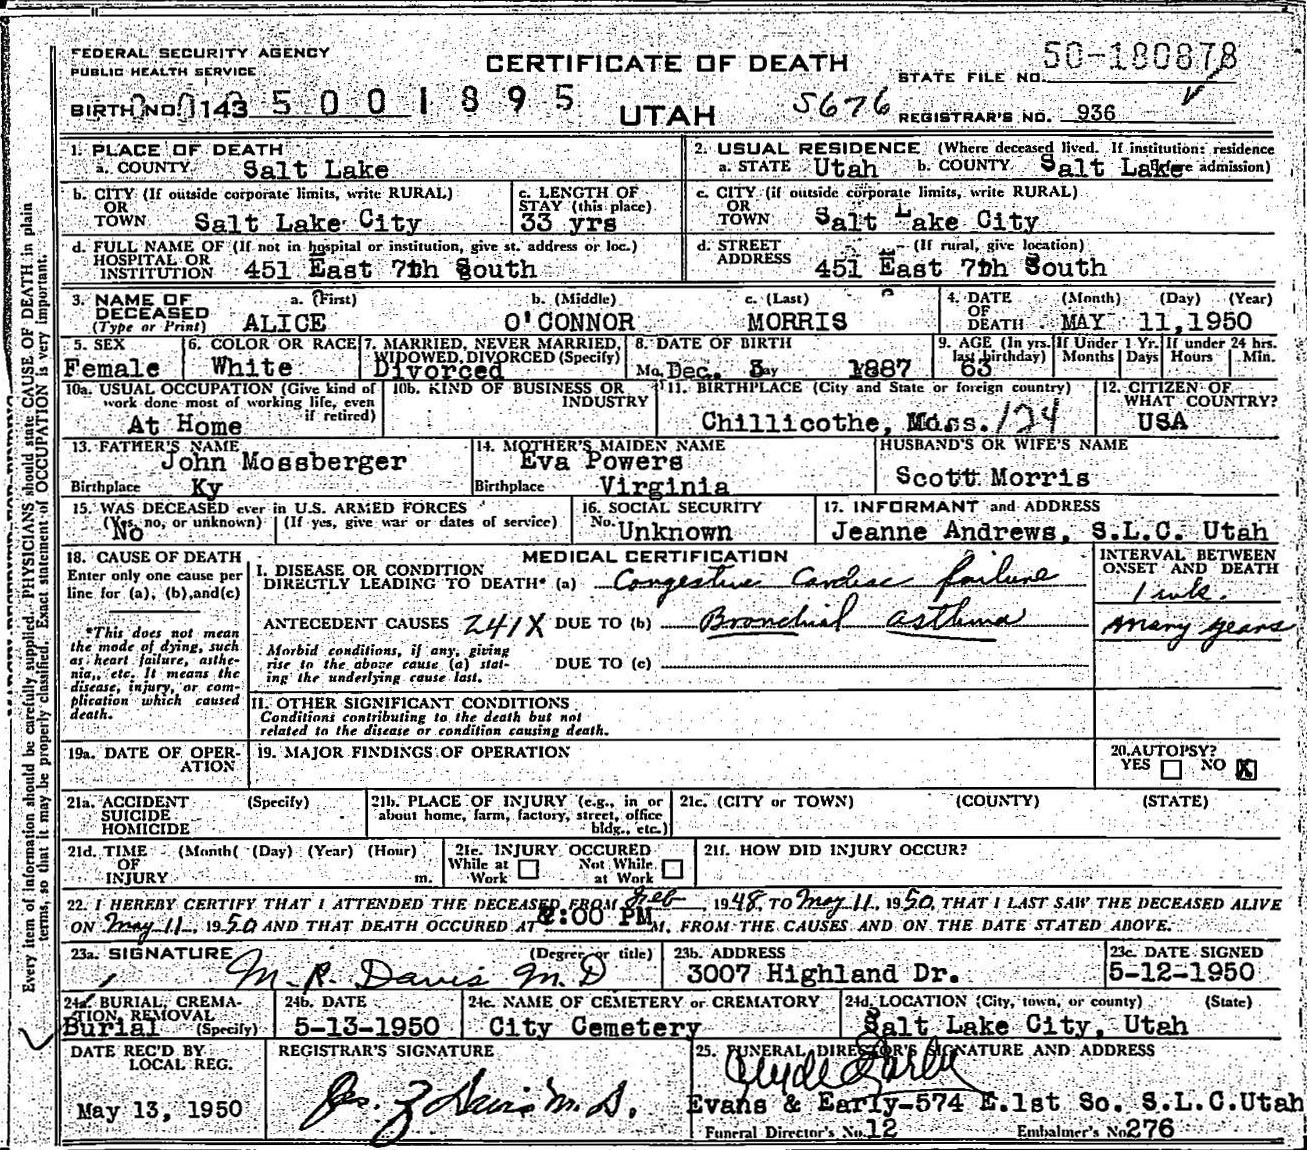 FEDERAL SECURITY AGENCY
PUBLIC HEALTH SERVICE
CERTIFICATE OF DEATH
UTAH
STATE FILE NO. 50-180878
BIRTH NO. 0143 5001895
5676
REGISTRAR'S NO. 936
Every item of information should be carefully supplied. PHYSICIANS should state CAUSE OF DEATH in plain
terms, so that it may be properly classified. Exact statement of OCCUPATION is very important.
1. PLACE OF DEATH
a. COUNTY Salt Lake
2. USUAL RESIDENCE (Where deceased lived. If institution: residence
a. STATE Utah b. COUNTY Salt Lake before admission)
b. CITY (If outside corporate limits, write RURAL)
OR
TOWN Salt Lake City
c. LENGTH OF
STAY (this place)
33 yrs
c. CITY (if outside corporate limits, write RURAL)
OR
TOWN Salt Lake City
d. FULL NAME OF (If not in hospital or institution, give st. address or loc.)
HOSPITAL OR
INSTITUTION 451 East 7th South
d. STREET (If rural, give location)
ADDRESS 451 East 7th South
3. NAME OF
DECEASED
(Type or Print)
a. (First) b. (Middle) c. (Last)
ALICE O'CONNOR MORRIS
4. DATE (Month) (Day) (Year)
OF
DEATH MAY 11, 1950
5. SEX
Female
6. COLOR OR RACE
White
7. MARRIED, NEVER MARRIED,
WIDOWED, DIVORCED (Specify)
Divorced
8. DATE OF BIRTH
Mo. Dec. 3 Day 1887
9. AGE (In yrs.
last birthday)
63
If Under 1 Yr.
Months Days
If under 24 hrs.
Hours Min.
10a. USUAL OCCUPATION (Give kind of
work done most of working life, even
if retired)
At Home
10b. KIND OF BUSINESS OR
INDUSTRY
11. BIRTHPLACE (City and State or foreign country)
Chillicothe, Mass. 124
12. CITIZEN OF
WHAT COUNTRY?
USA
13. FATHER'S NAME
John Mossberger
Birthplace Ky
14. MOTHER'S MAIDEN NAME
Eva Powers
Birthplace Virginia
HUSBAND'S OR WIFE'S NAME
Scott Morris
15. WAS DECEASED ever in U.S. ARMED FORCES
(Yes, no, or unknown) (If yes, give war or dates of service)
No
16. SOCIAL SECURITY
No. Unknown
17. INFORMANT and ADDRESS
Jeanne Andrews, S.L.C. Utah
18. CAUSE OF DEATH
Enter only one cause per
line for (a), (b), and (c)
*This does not mean
the mode of dying, such
as heart failure, asthe-
nia, etc. It means the
disease, injury, or com-
plication which caused
death.
MEDICAL CERTIFICATION
I. DISEASE OR CONDITION
DIRECTLY LEADING TO DEATH* (a) Congestive Cardiac failure
ANTECEDENT CAUSES 241X DUE TO (b) Bronchial asthma
Morbid conditions, if any, giving
rise to the above cause (a) stat-
ing the underlying cause last.
DUE TO (c)
INTERVAL BETWEEN
ONSET AND DEATH
1 wk.
many years
II. OTHER SIGNIFICANT CONDITIONS
Conditions contributing to the death but not
related to the disease or condition causing death.
19a. DATE OF OPER-
ATION
19. MAJOR FINDINGS OF OPERATION
20. AUTOPSY?
YES NO X
21a. ACCIDENT (Specify)
SUICIDE
HOMICIDE
21b. PLACE OF INJURY (e.g., in or
about home, farm, factory, street, office
bldg., etc.)
21c. (CITY or TOWN) (COUNTY) (STATE)
21d. TIME (Month( (Day) (Year) (Hour)
OF
INJURY m.
21e. INJURY OCCURED
While at Not While
Work at Work
21f. HOW DID INJURY OCCUR?
22. I HEREBY CERTIFY THAT I ATTENDED THE DECEASED FROM Feb, 1948, TO May 11, 1950, THAT I LAST SAW THE DECEASED ALIVE
ON May 11, 1950 AND THAT DEATH OCCURED AT :00 PM M. FROM THE CAUSES AND ON THE DATE STATED ABOVE.
23a. SIGNATURE (Degree or title)
M. R. Davis M.D
23b. ADDRESS
3007 Highland Dr.
23c. DATE SIGNED
5-12-1950
24a. BURIAL, CREMA-
TION, REMOVAL
Burial (Specify)
24b. DATE
5-13-1950
24c. NAME OF CEMETERY or CREMATORY
City Cemetery
24d. LOCATION (City, town, or county) (State)
Salt Lake City, Utah
DATE REC'D BY
LOCAL REG.
May 13, 1950
REGISTRAR'S SIGNATURE
Davis M.D.
25. FUNERAL DIRECTOR'S SIGNATURE AND ADDRESS
Clyde Early
Evans & Early-574 E.1st So. S.L.C.Utah
Funeral Director's No. 12 Embalmer's No 276